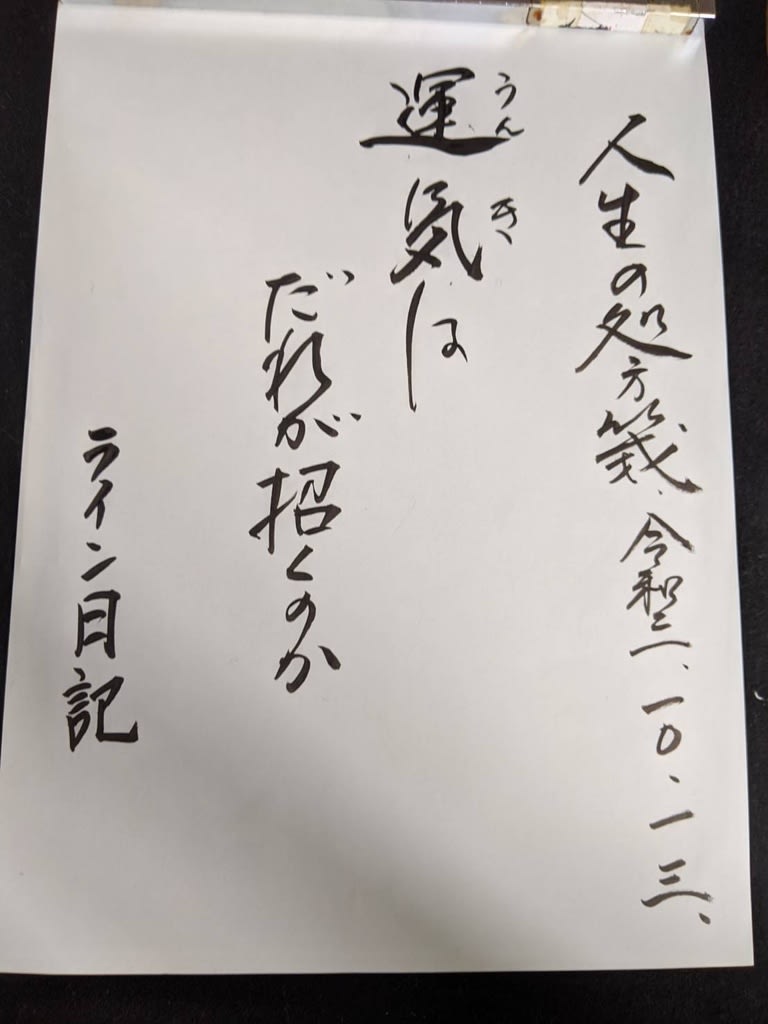 人生の処方箋、令和二、一〇、一三、
運気は
うんき
だれが招くのか
ライン日記